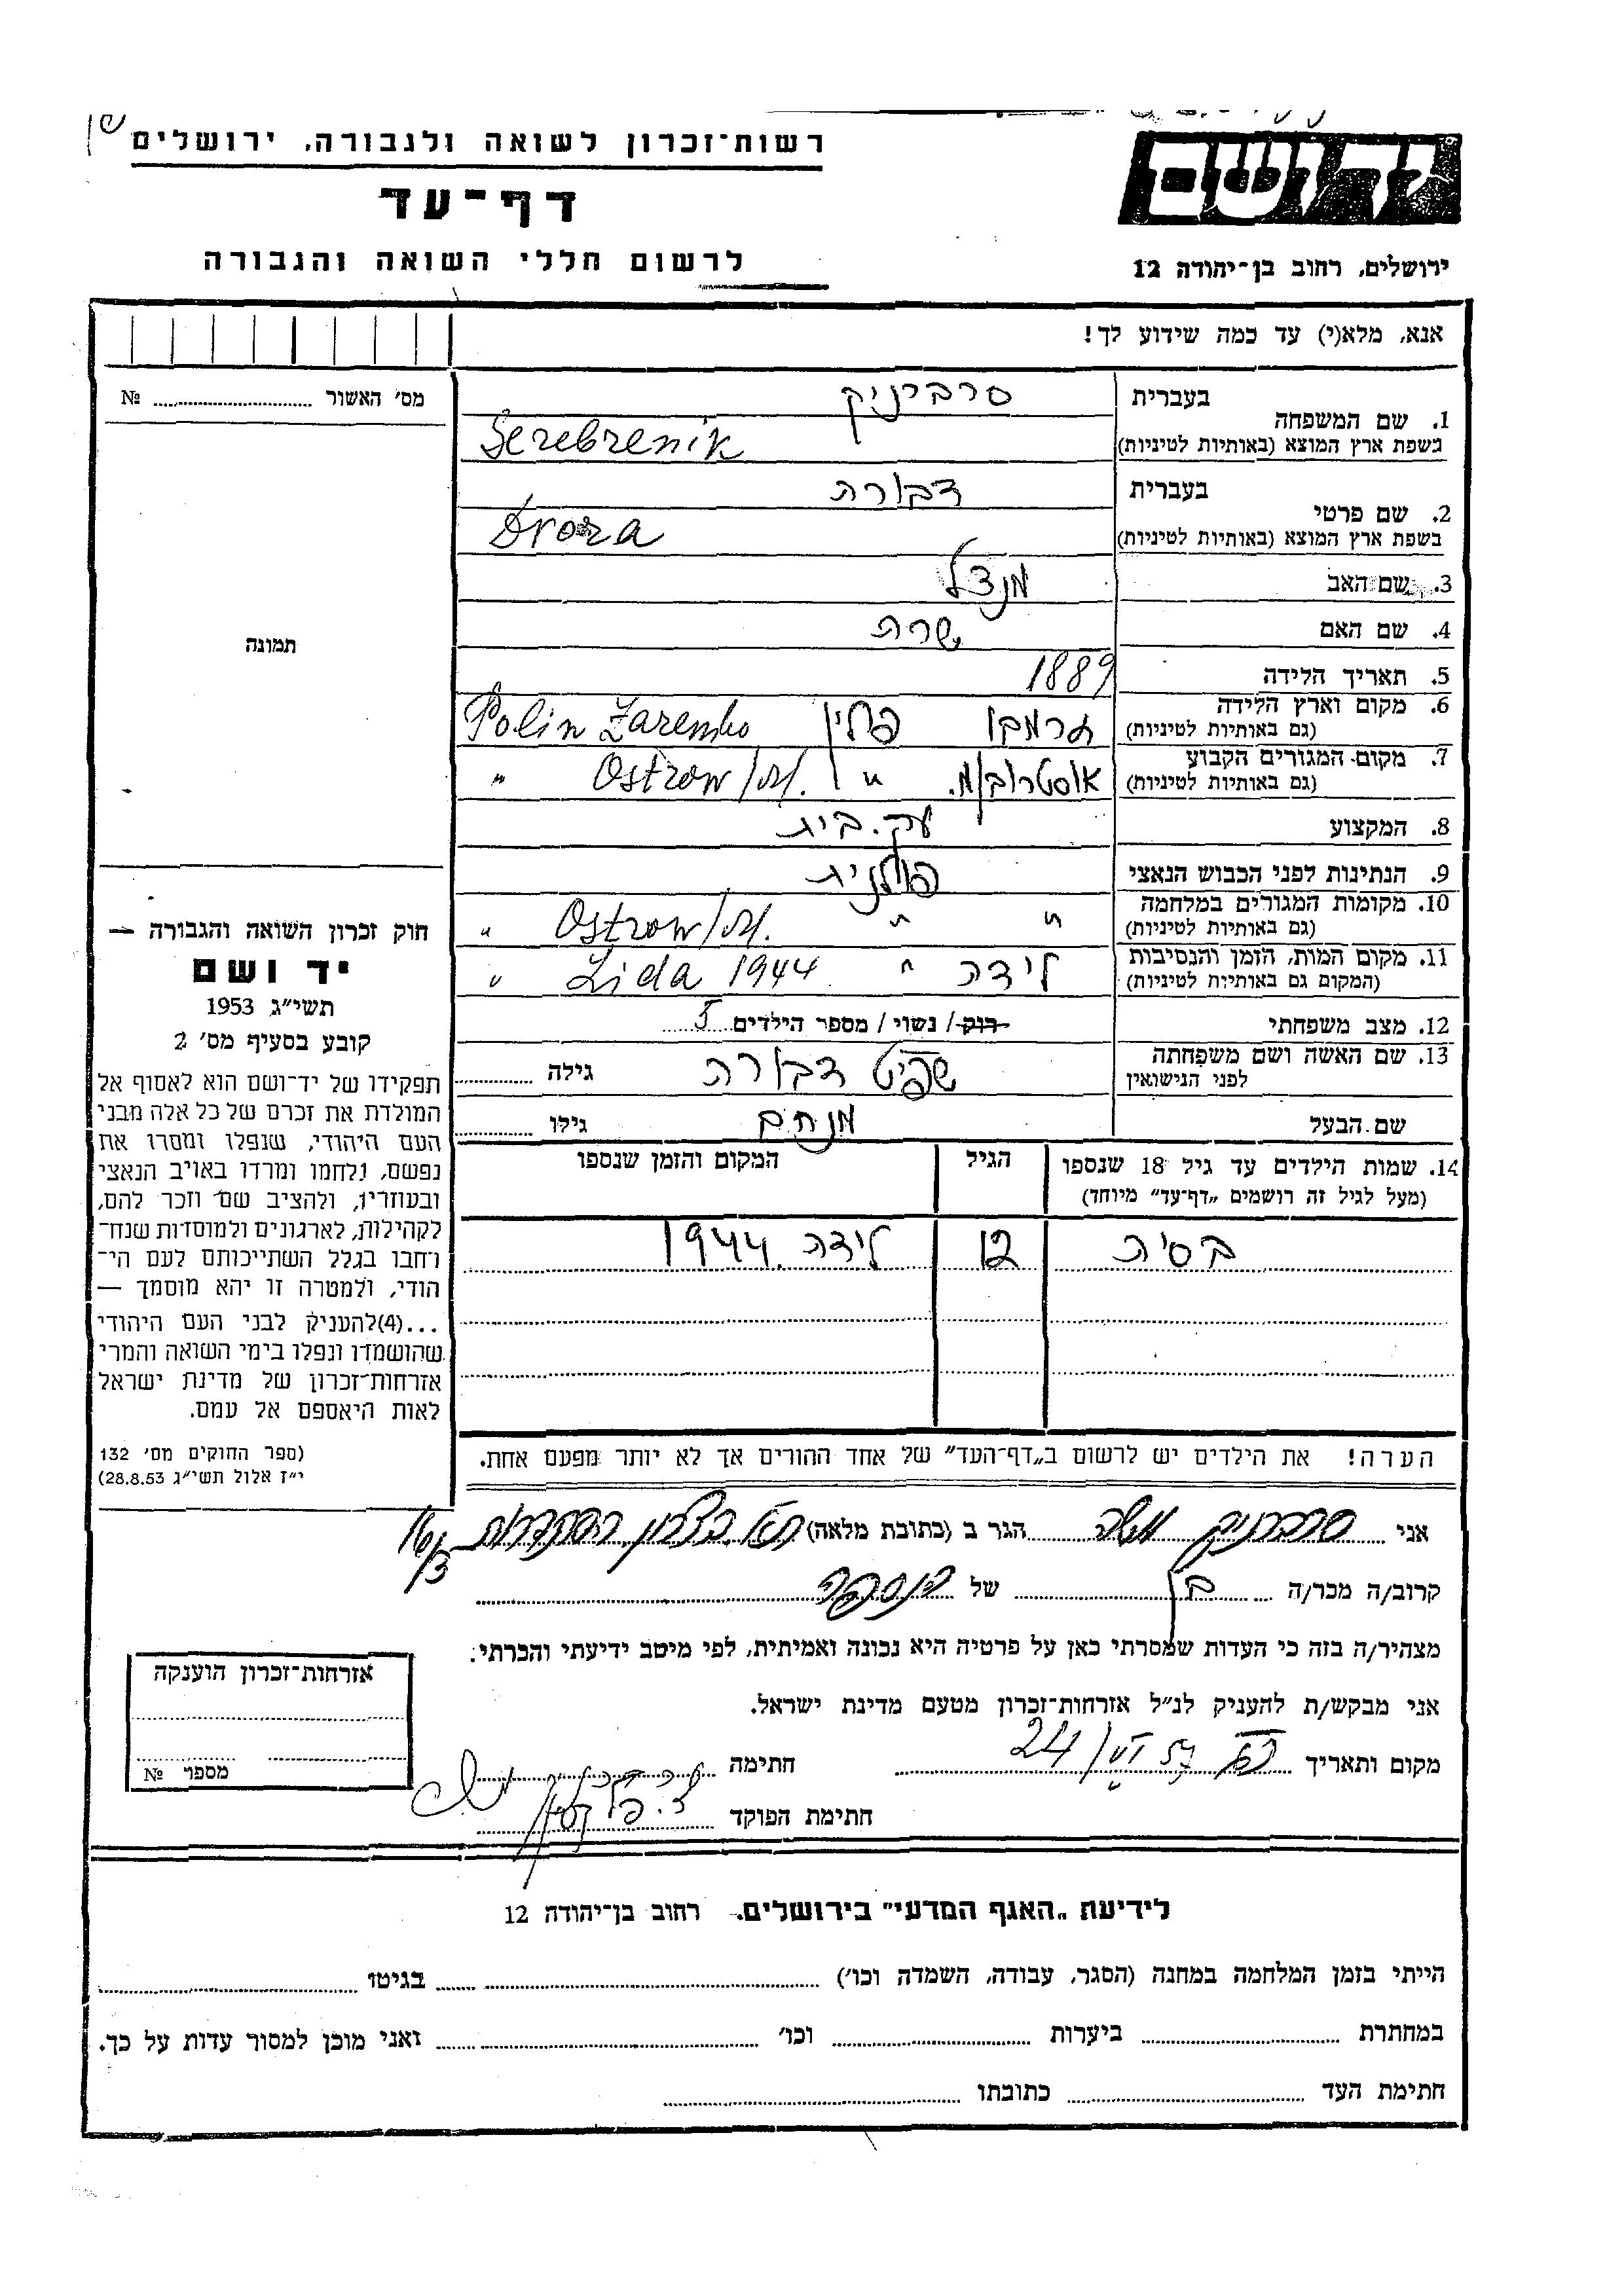 רשות־זכרון לשואה ולגבורה, ירושלים
דף־עד
לרשום חללי השואה והגבורה
יד ושם
ירושלים, רחוב בן־יהודה 12
אנא, מלא(י) עד כמה שידוע לך!
מס׳ האשור № 
תמונה
1. שם המשפחה
בעברית סרברניק
בשפת ארץ המוצא (באותיות לטיניות) Serebrenik
2. שם פרטי
בעברית דבורה
בשפת ארץ המוצא (באותיות לטיניות) Dvora
3. שם האב מנדל
4. שם האם שרה
5. תאריך הלידה 1889
6. מקום וארץ הלידה
(גם באותיות לטיניות) זרמבו פולין Polin Zarembo
7. מקום המגורים הקבוע
(גם באותיות לטיניות) אוסטרוב/מ. " Ostrow/M. "
8. המקצוע עק. בית
9. הנתינות לפני הכבוש הנאצי פולנית
10. מקומות המגורים במלחמה
(גם באותיות לטיניות) " " Ostrow/M. "
11. מקום המות, הזמן והנסיבות
(המקום גם באותיות לטיניות) לידה " Lida 1944 "
12. מצב משפחתי רווק/ נשוי/ מספר הילדים 5
13. שם האשה ושם משפחתה
לפני הנישואין דבורה גילה
שם הבעל מנחם גילו
14. שמות הילדים עד גיל 18 שנספו
(מעל לגיל זה רושמים „דף־עד” מיוחד)
הגיל
המקום והזמן שנספו
בסיה 12 לידה 1944
הערה! את הילדים יש לרשום ב„דף־העד” של אחד ההורים אך לא יותר מפעם אחת.
חוק זכרון השואה והגבורה —
יד ושם
תשי״ג 1953
קובע בסעיף מס׳ 2
תפקידו של יד־ושם הוא לאסוף אל
המולדת את זכרם של כל אלה מבני
העם היהודי, שנפלו ומסרו את
נפשם, נלחמו ומרדו באויב הנאצי
ובעוזריו, ולהציב שם וזכר להם,
לקהילות, לארגונים ולמוסדות שנח־
רבו בגלל השתייכותם לעם הי־
הודי, ולמטרה זו יהא מוסמך —
...(4)להעניק לבני העם היהודי
שהושמדו ונפלו בימי השואה והמרי
אזרחות־זכרון של מדינת ישראל
לאות היאספם אל עמם.
(ספר החוקים מס׳ 132
י״ז אלול תשי״ג 28.8.53)
אני סרברניק משה הגר ב (כתובת מלאה) 16/3
קרוב/ה מכר/ה בן של
מצהיר/ה בזה כי העדות שמסרתי כאן על פרטיה היא נכונה ואמיתית, לפי מיטב ידיעתי והכרתי.
אני מבקש/ת להעניק לנ״ל אזרחות־זכרון מטעם מדינת ישראל.
מקום ותאריך 24/VI 57 חתימה
חתימת הפוקד
אזרחות־זכרון הוענקה
מספר №
לידיעת „האגף המדעי” בירושלים. רחוב בן־יהודה 12
הייתי בזמן המלחמה במחנה (הסגר, עבודה, השמדה וכו׳) בגיטו
במחתרת ביערות וכו׳ ואני מוכן למסור עדות על כך.
חתימת העד כתובתו